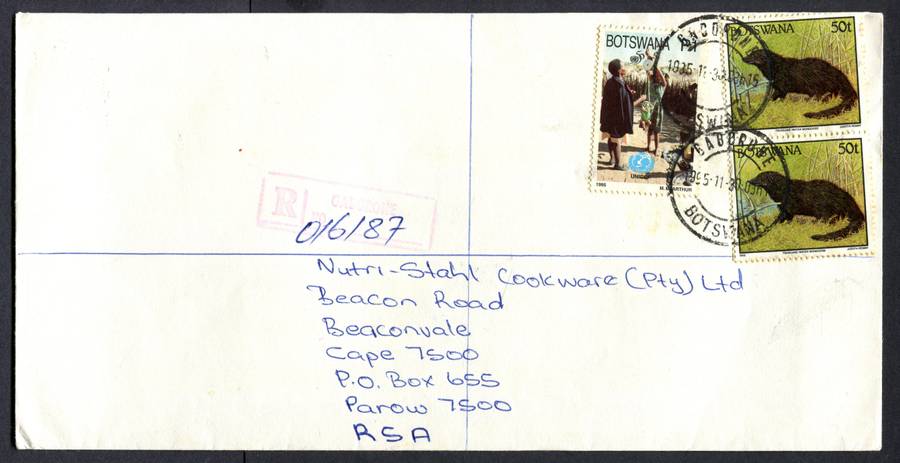 BOTSWANA
UNICEF
1995
BOTSWANA 50t
BOTSWANA 50t
GABORONE
1995-11-30
BOTSWANA
R GABORONE
016187
Nutri-Stahl Cookware (Pty) Ltd
Beacon Road
Beaconvale
Cape 7500
P.O. Box 655
Parow 7500
RSA